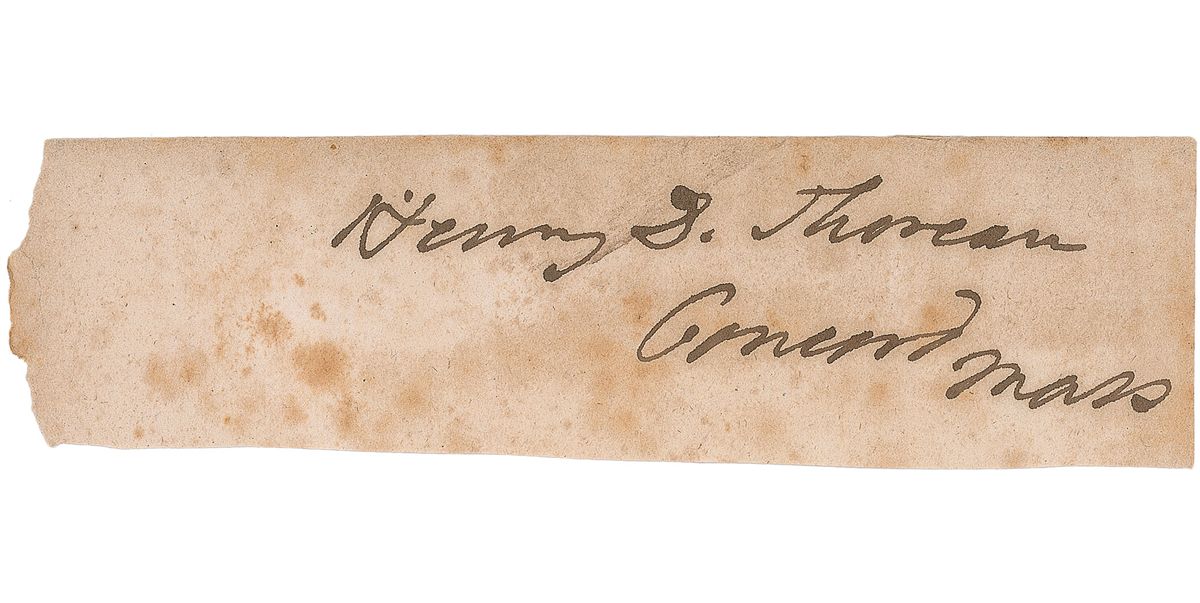 Henry D. Thoreau
Concord
Mass